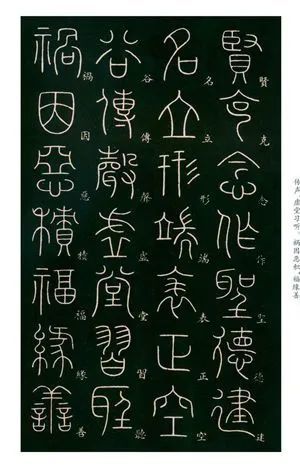 传声，虚堂习听。祸因恶积，福缘善
賢克念作聖德建
賢克念作聖德建
名立形端表正空
名立形端表正空
谷傳聲虛堂習聽
谷傳聲虛堂習聽
禍因惡積福緣善
禍因惡積福緣善